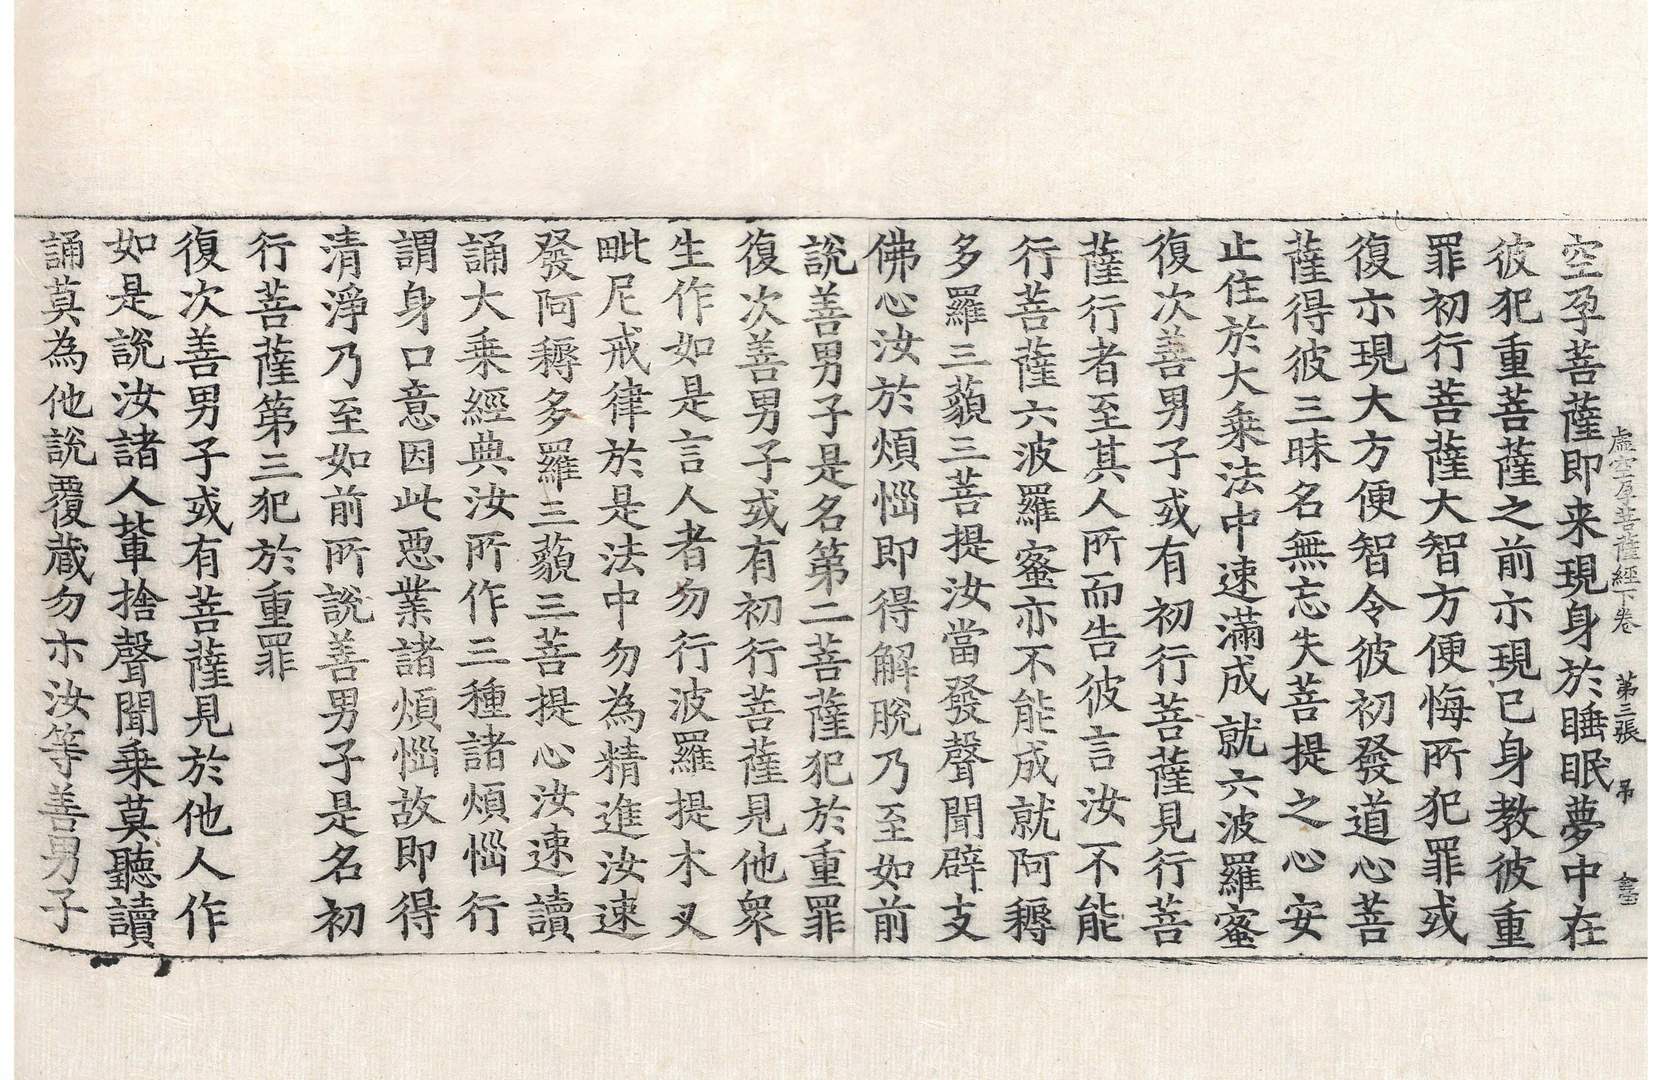 虛空孕菩薩經下卷　第三張　吊
空孕菩薩即来現身於睡眠夢中在
彼犯重菩薩之前亦現已身教彼重
罪初行菩薩大智方便悔所犯罪或
復亦現大方便智令彼初發道心菩
薩得彼三昧名無忘失菩提之心安
止住於大乗法中速滿成就六波羅蜜
復次善男子或有初行菩薩見行菩
薩行者至其人所而告彼言汝不能
行菩薩六波羅蜜亦不能成就阿耨
多羅三藐三菩提汝當發聲聞辟支
佛心汝於煩惱即得解脫乃至如前
說善男子是名第二菩薩犯於重罪
復次善男子或有初行菩薩見他衆
生作如是言人者勿行波羅提木叉
毗尼戒律於是法中勿為精進汝速
發阿耨多羅三藐三菩提心汝速讀
誦大乗經典汝所作三種諸煩惱行
謂身口意因此惡業諸煩惱故即得
清淨乃至如前所說善男子是名初
行菩薩第三犯於重罪
復次善男子或有菩薩見於他人作
如是說汝諸人輩捨聲聞乗莫聽讀
誦莫為他說覆蔵勿示汝等善男子